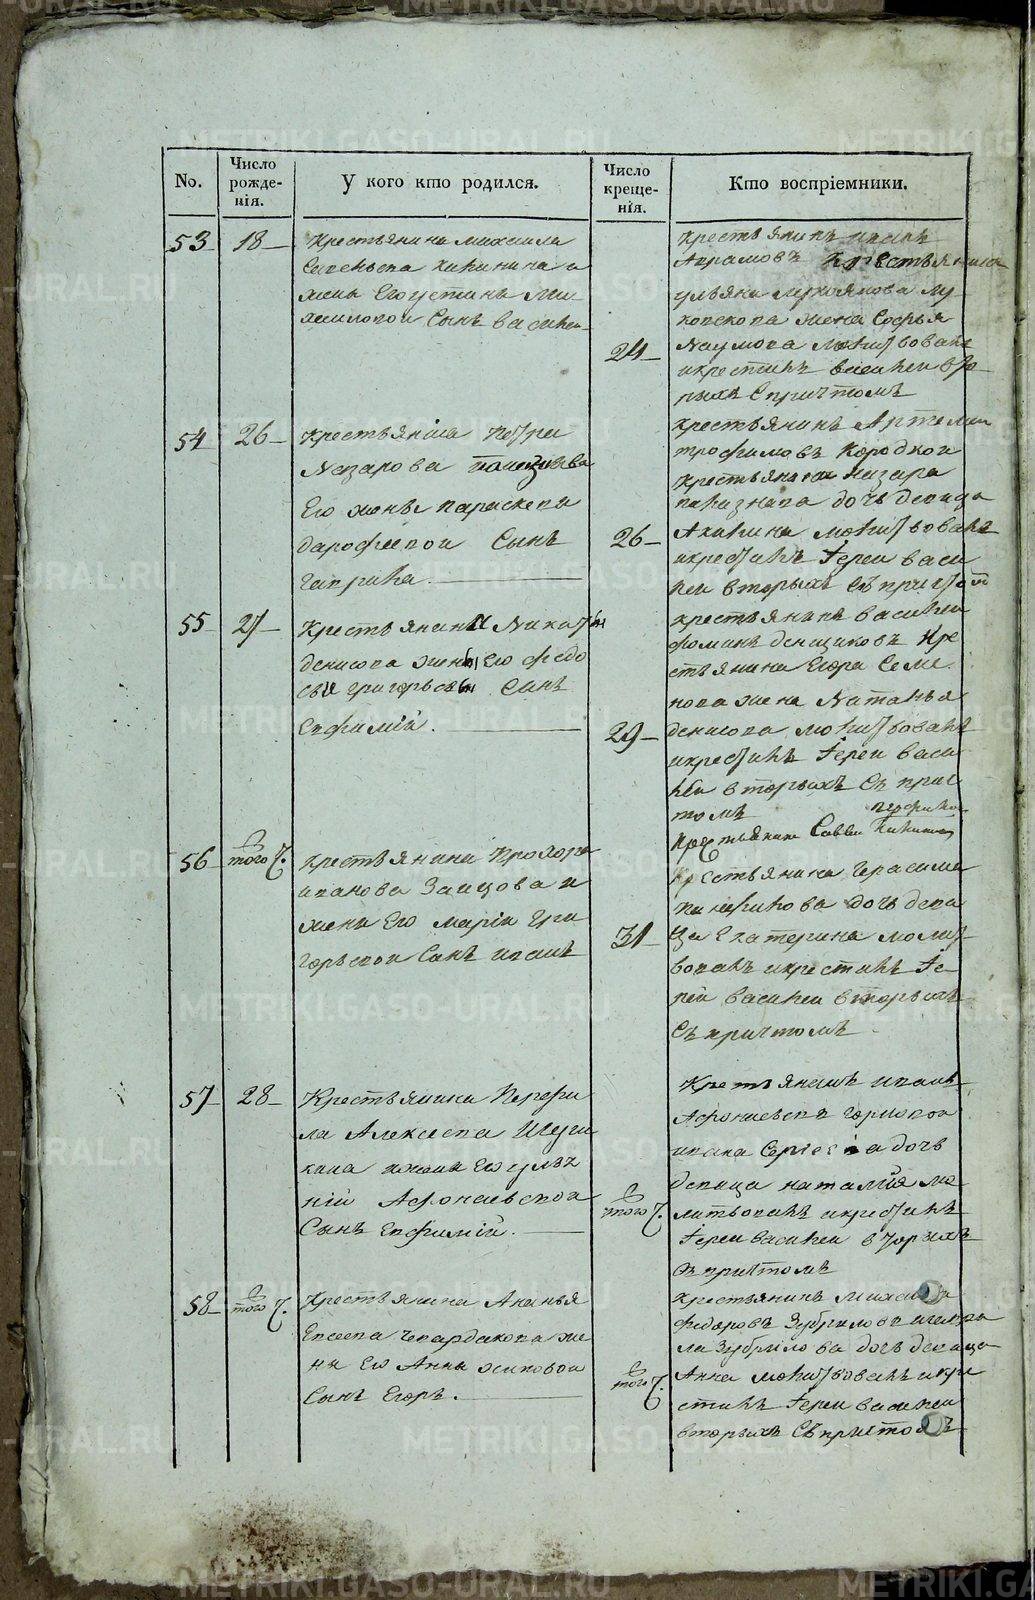 No.
Число
рожде-
нія.
У кого кто родился.
Число
креще-
нія.
Кто воспріемники.
53
18
Крестьянина михаила
жены Его устинь
Сынъ василеи
24
Крестьянинъ иванъ
Аврамовъ Крестьянина
ульяна
жена Софья
Наумова молитвовалъ
икрестилъ василеи вто
рыхъ Спричтомъ
54
26
Крестьянина Петра
Назарова
Его жонъ параскеви
дарофеевои Сынъ
гаврила.
26
крестьянинъ Артемии
трофимовъ Короткои
крестьянина Назара
дочь девица
Акилина молитвовалъ
икрестилъ Іереи васи
леи вторыхъ Съ причтом
55
27
Крестьянина Никиты
денисова жены Его федо
сьи григорьевы Сынъ
Евфимій.
29
крестьянинъ василеи
фоминъ денщиковъ Кре
стьянина Егора Семе
нова жена Наталья
денисова молитвовалъ
икрестилъ Іереи васи
леи вторыхъ Съ прич
томъ
56
того ч.
крестьянина Прохора
иванова Заицова и
жены Его маріи Гри
горьевои Сынъ иванъ
31
Крестьянинъ Савва
Крестьянина Герасима
дочь деви
ца Екатерина молит
вовалъ икрестилъ Іе
реи василеи вторыхъ
Съ причтомъ
57
28
Крестьянина Перфи
ла Алексеева
ижены Его улья
ніи Афонасьевои
Сынъ Евфимій.
того ч.
Крестьянинъ иванъ
Афонасьевъ
ивана Сергеева дочь
девица наталия мо
литвовалъ икрестилъ
Іереи василеи вторыхъ
Съ причтомъ
58
того ч.
Крестьянина Ананья
Евсеева Чепардакова же
ны Его Анны осиповои
Сынъ Егоръ.
того ч.
крестьянинъ Михаила
федоровъ Зубриловъ
ла Зубрилова дочь девица
Анна молитвовалъ икре
стилъ Іереи василеи
вторыхъ Съ причтомъ
METRIKI.GASO-URAL.RU